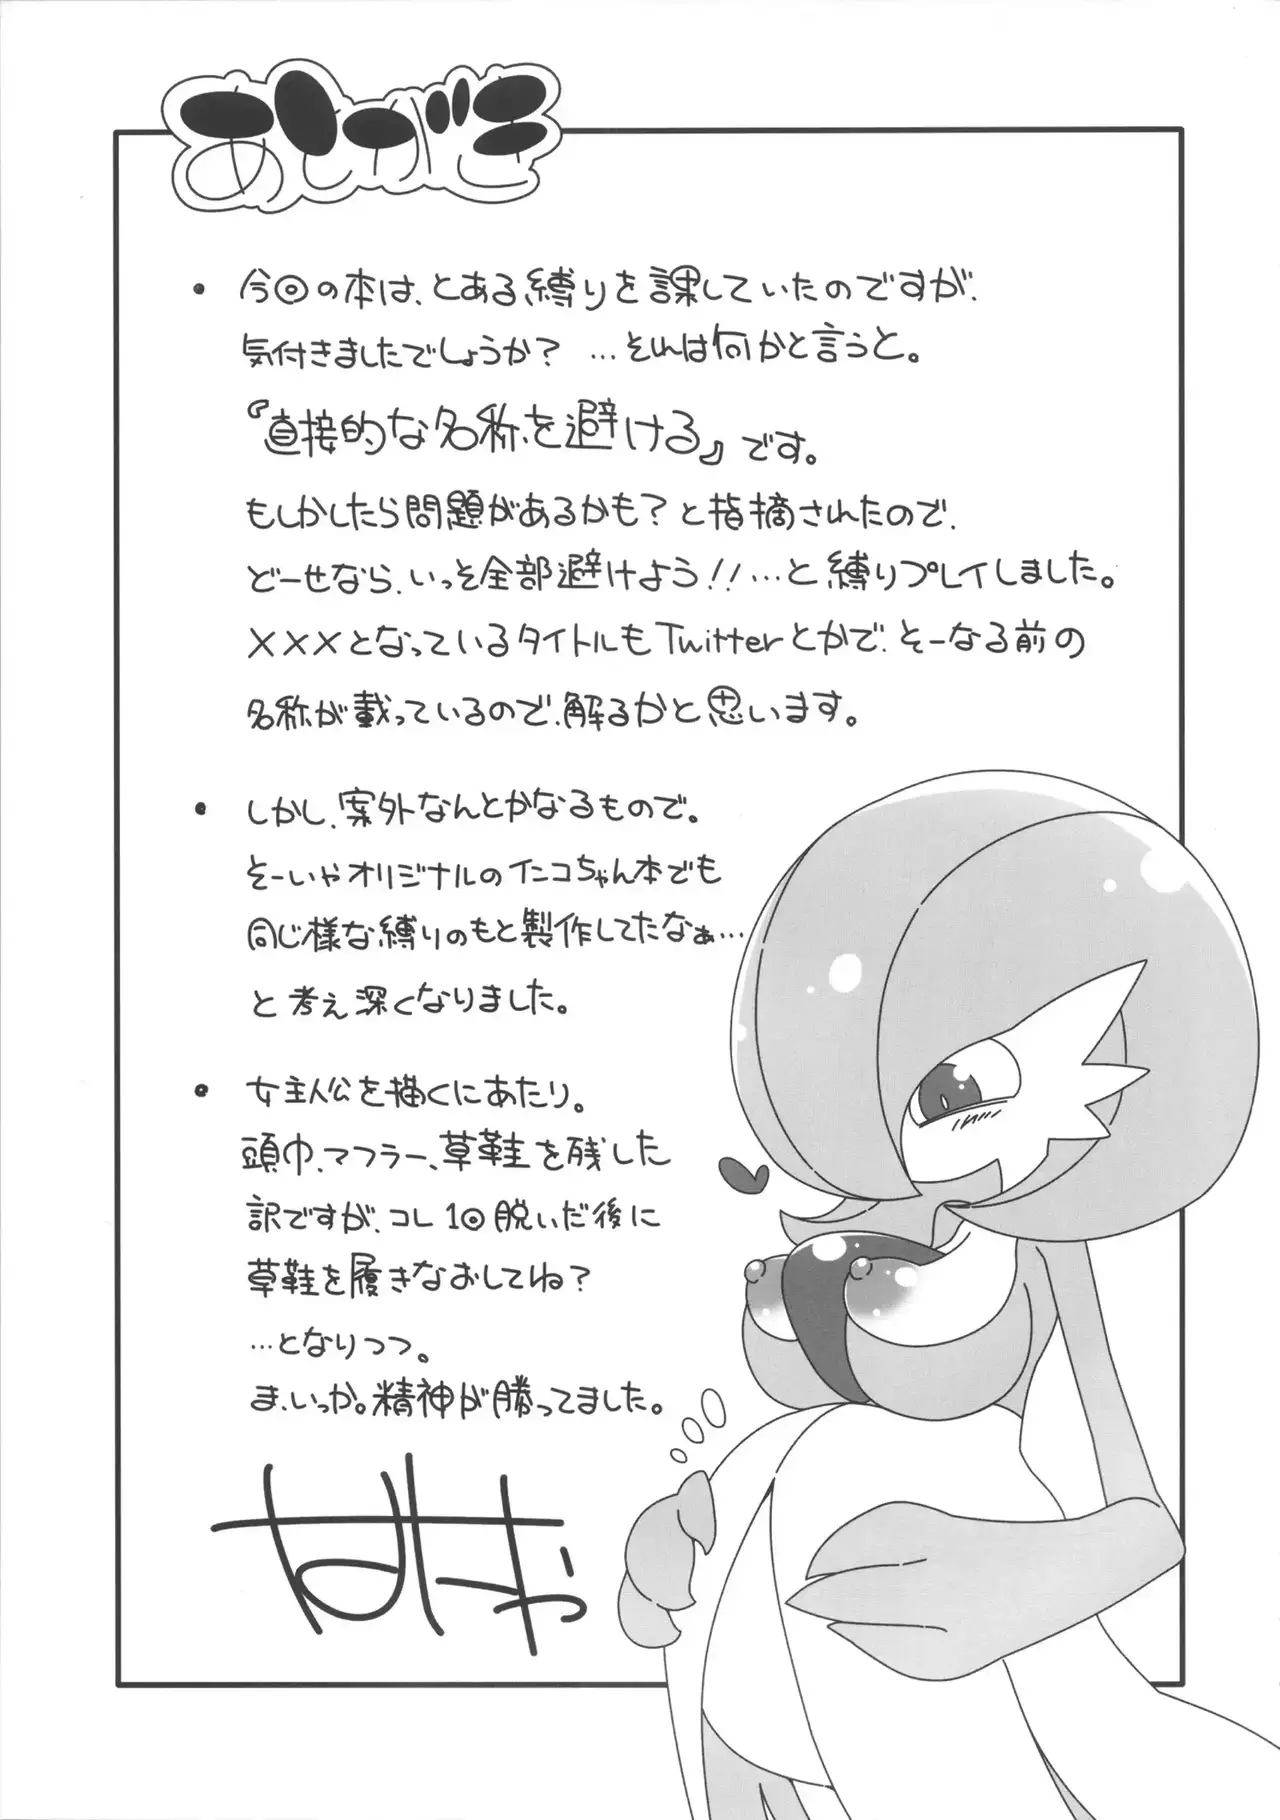 あとがき
・今回の本は、とある縛りを課していたのですが、
気付きましたでしょうか？ …それは何かと言うと。
『直接的な名称を避ける』です。
もしかしたら問題があるかも？と指摘されたので、
どーせなら、いっそ全部避けよう!!…と縛りプレイしました。
×××となっているタイトルもTwitterとかで、そーなる前の
名称が載っているので、解るかと思います。
・しかし、案外なんとかなるもので。
そーいやオリジナルのインコちゃん本でも
同じ様な縛りのもと製作してたなぁ…
と考え深くなりました。
・女主人公を描くにあたり。
頭巾、マフラー、草鞋を残した
訳ですが、コレ1回脱いだ後に
草鞋を履きなおしてね？
…となりつつ。
ま、いっか。精神が勝ってました。